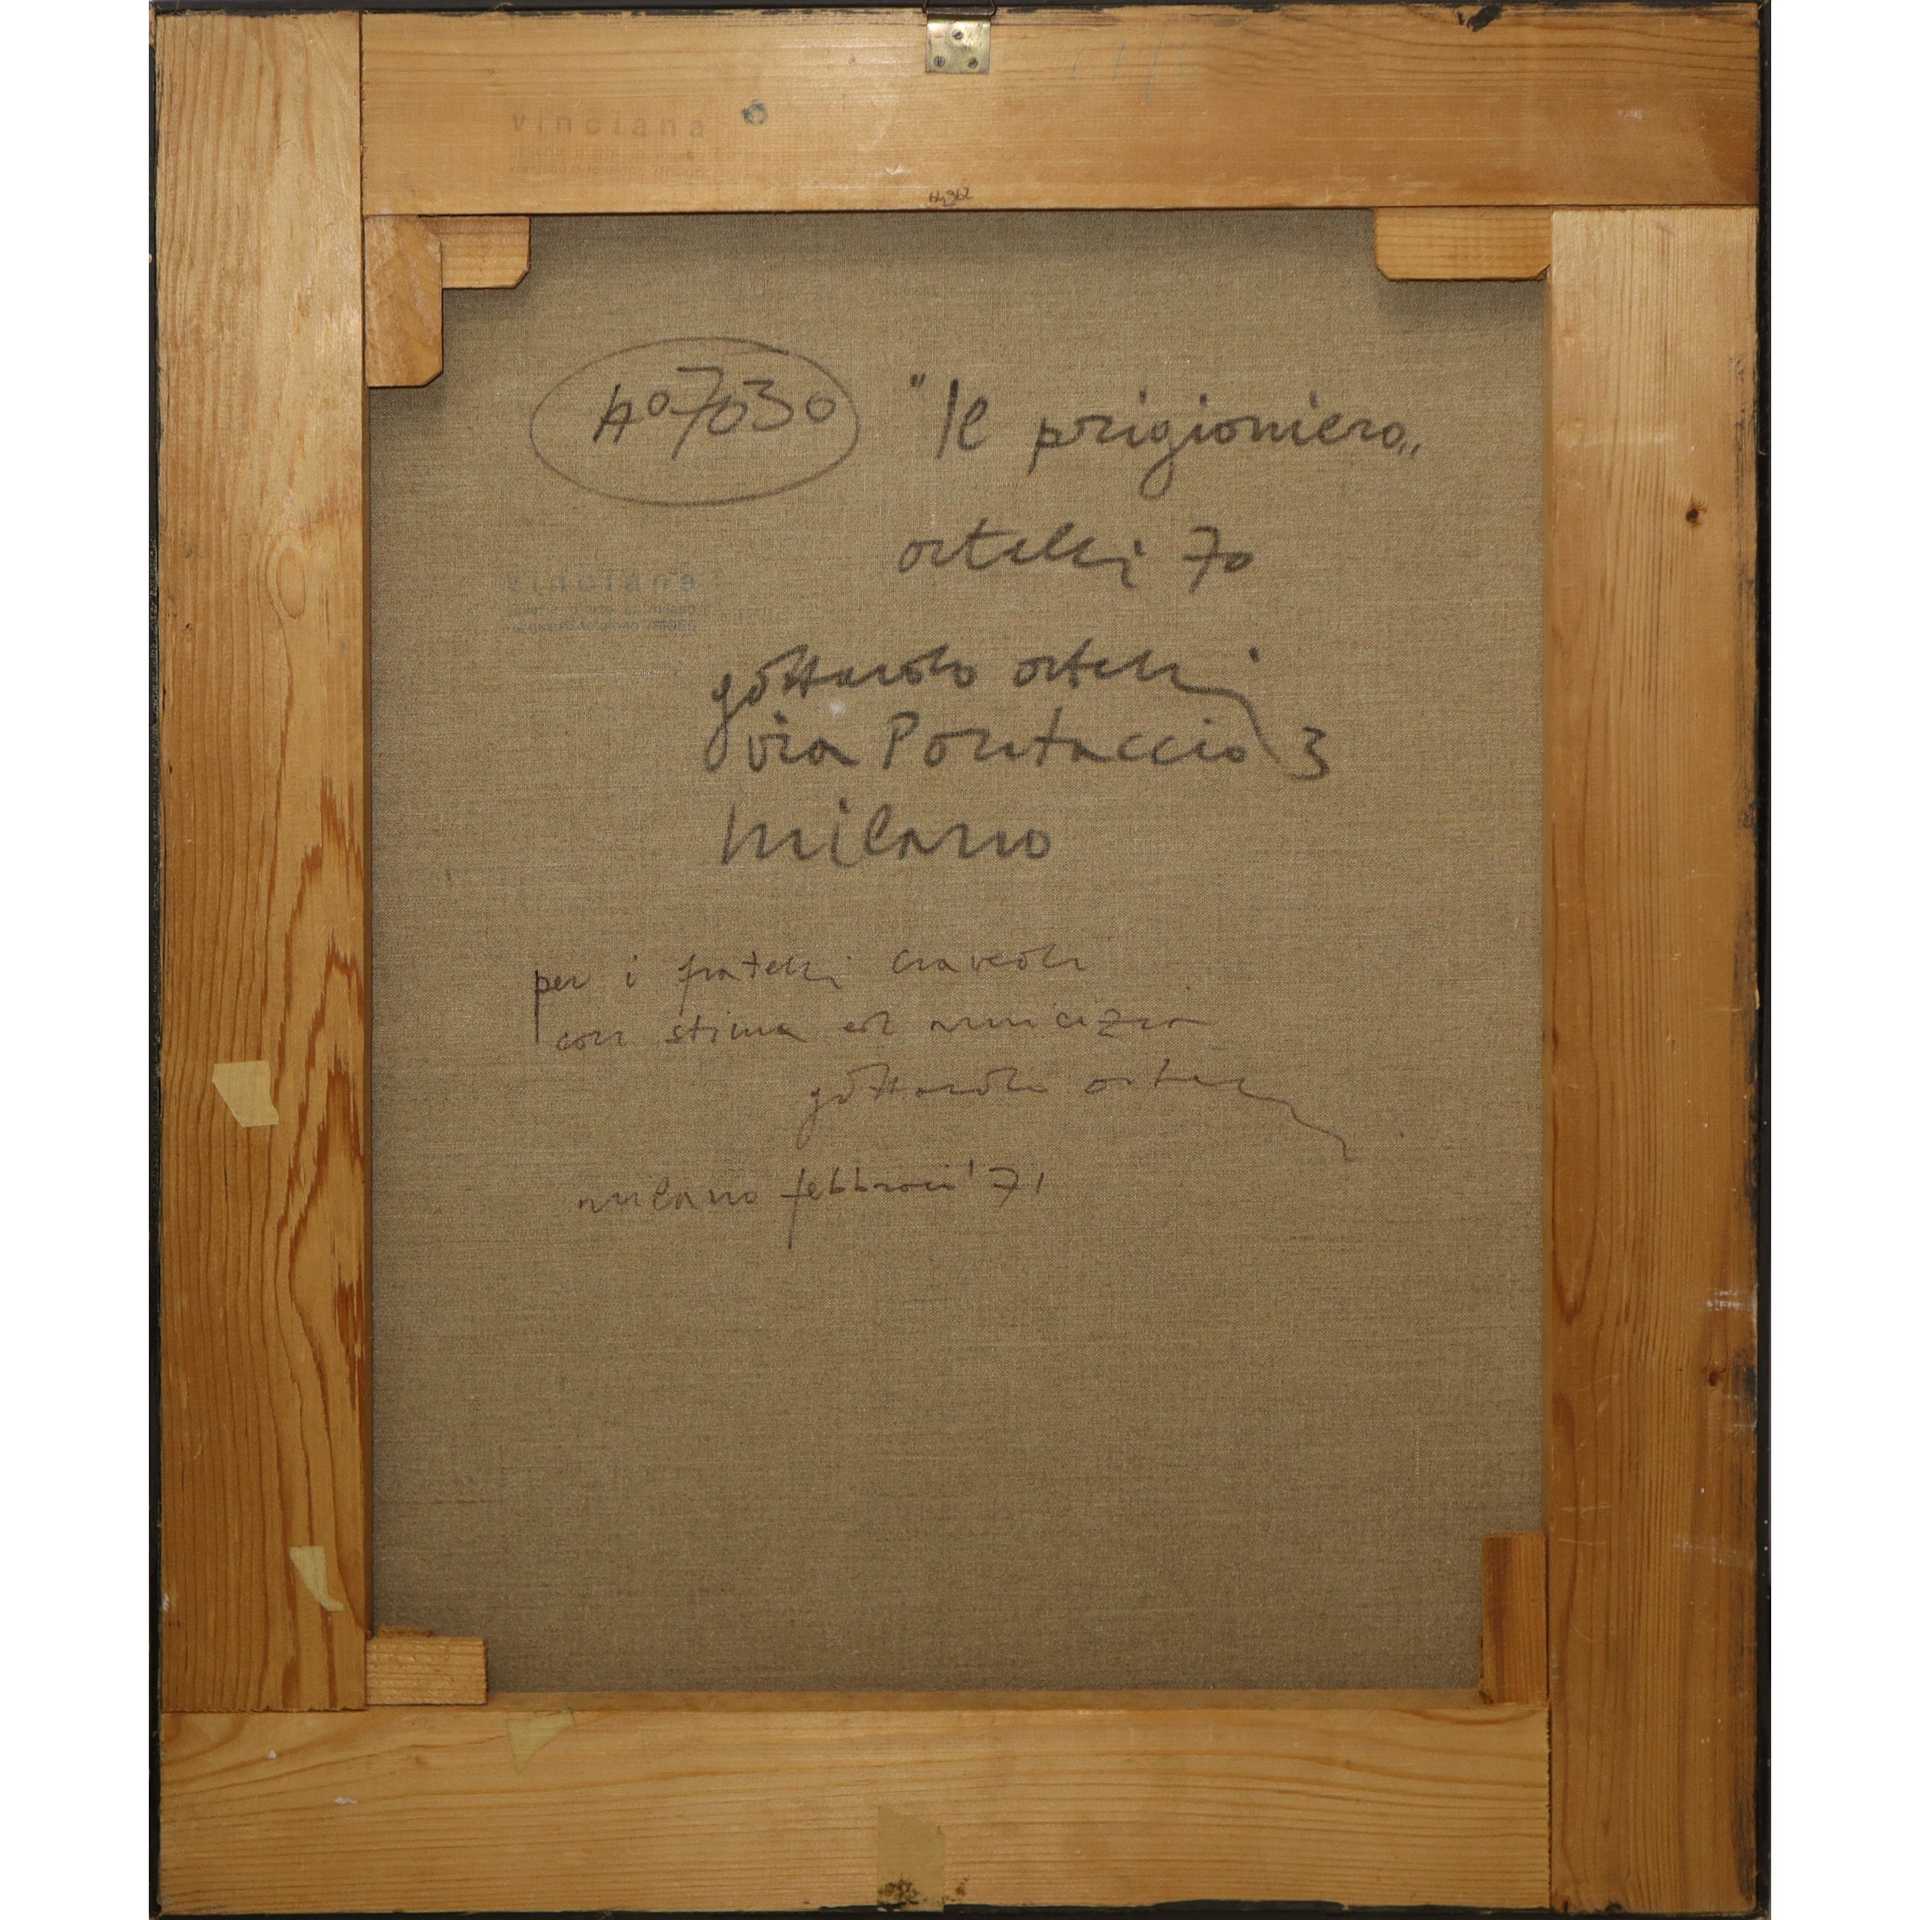 vinciana
A° 7030
"Il prigioniero"
ortelli 70
vinciana
gottardo ortelli
via Pontaccio 3
milano
per i fratelli
con stima ed amicizia
gottardo ortelli
milano febbraio '71